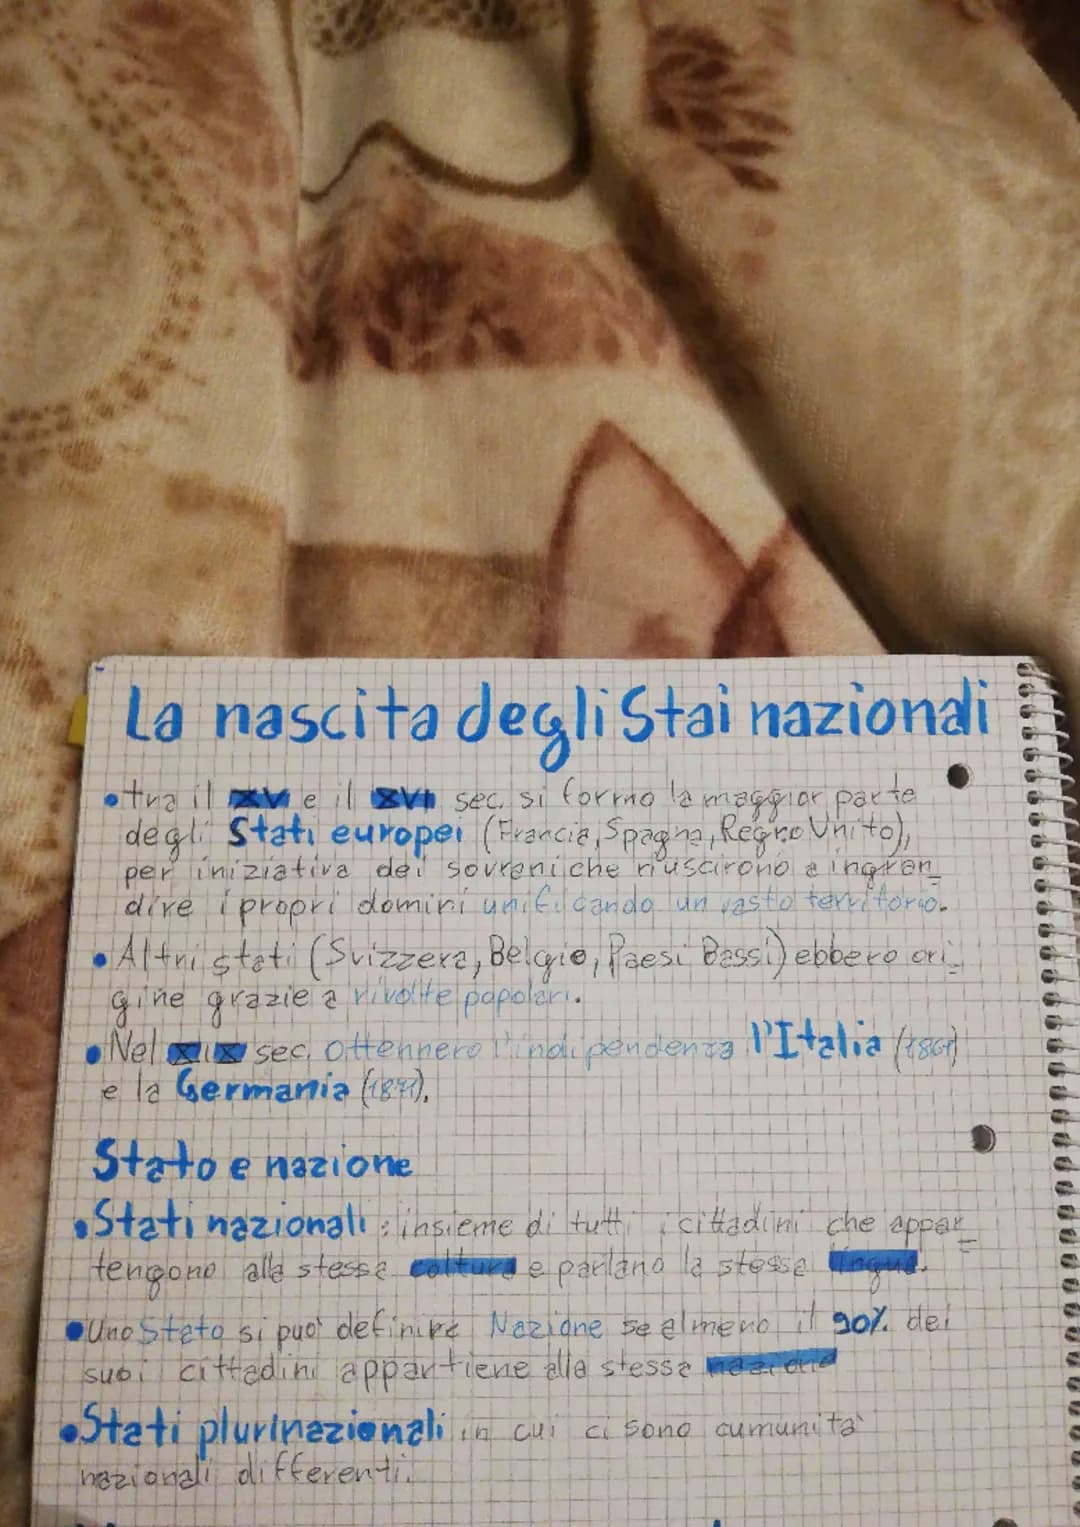 La nascita degli Stai nazionali
• tra il XV e il XVI sec. si formò la maggior parte
degli Stati europei (Francia, Spagna, Regno Unito),
per iniziativa dei sovrani che riuscirono a ingran_
dire i propri domini unificando un vasto territorio.
• Altri stati (Svizzera, Belgio, Paesi Bassi) ebbero ori_
gine grazie a rivolte popolari.
• Nel XIX sec. ottennero l'indipendenza l'Italia (1861)
e la Germania (1871).
Stato e nazione
• Stati nazionali: insieme di tutti i cittadini che appar_
tengono alla stessa coltura e parlano la stessa lingua.
• Uno Stato si può definire Nazione se almeno il 90% dei
suoi cittadini appartiene alla stessa nazione
• Stati plurinazionali in cui ci sono cumunità
nazionali differenti.